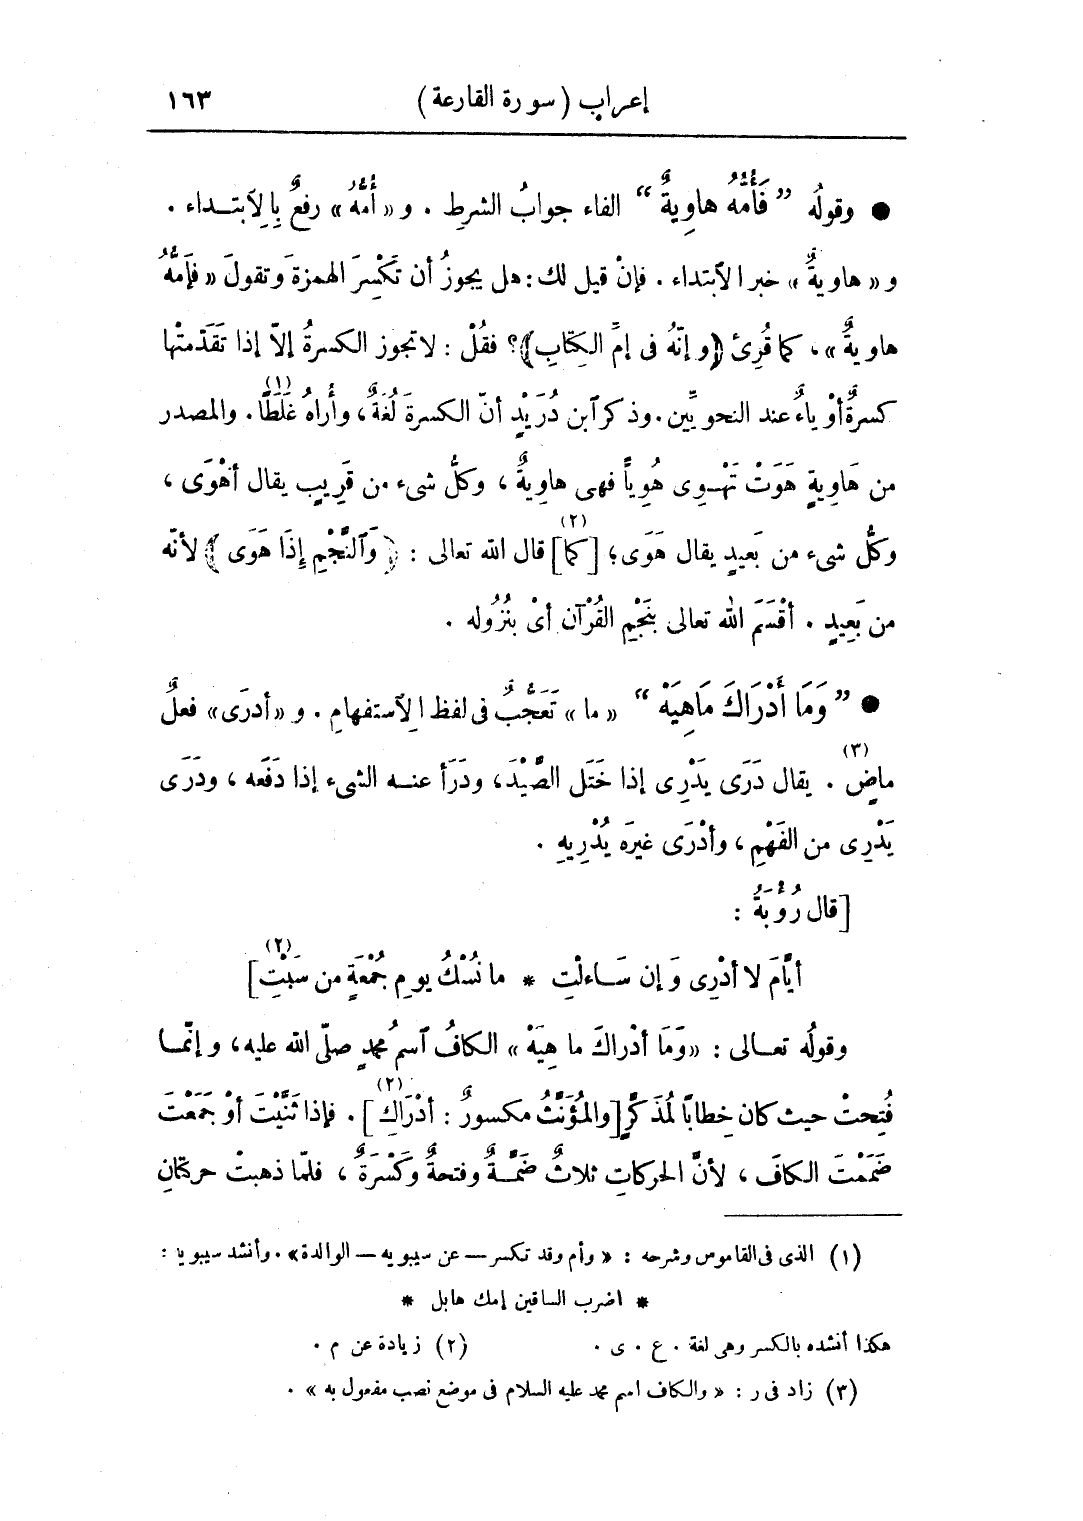 إعراب (سورة القارعة) ١٦٣
● وقولُه ” فَأُمُّهُ هاوِيةٌ “ الفاء جوابُ الشرطِ . و « أُمُّهُ » رفعٌ بِالِٱبتـداء .
و « هاويةٌ » خبر الٱبتداء . فإنْ قيل لك : هل يجوزُ أن تَكْسِرَ الهمزةَ وتقولَ « فَإِمُّهُ
هاويةٌ » ، كما قُرِئ ﴿ وإنّهُ فى إمِّ الكِتَابِ ﴾؟ فقُلْ : لا تجوز الكسرةُ إلّا إذا تقَدَّمتْها
كسرةٌ أوْ ياءٌ عند النحويِّين . وذكر ٱبن دُرَيْدٍ أنّ الكسرةَ لُغَةٌ ، وأُراهُ غَلَطًا (١) . والمصدر
من هَاوِيةٍ هَوَتْ تَهْـوِى هُوِياًّ فهى هاوِيةٌ ، وكلُّ شىء من قَرِيبٍ يقال أهْوَى ،
وكلُّ شىء من بَعيدٍ يقال هَوَى ؛ [كما] (٢) قال الله تعالى : ﴿ وَٱلنَّجْمِ إذَا هَوَى ﴾ لأنّه
من بَعِيدٍ . أقْسَمَ الله تعالى بنَجْمِ القُرْآن أىْ بنُزُوله .
● ” وَمَا أَدْرَاكَ مَاهِيَهْ “ « ما » تَعَجُّبٌ فى لفظ الٱستفهامِ . و « أدرَى » فعلٌ
ماضٍ (٣) . يقال دَرَى يَدْرِى إذا خَتَل الصَّيْدَ ، ودَرَأ عنـه الشىء إذا دَفَعه ، ودَرَى
يَدْرِى من الفَهْمِ ، وأدْرَى غيرَه يُدْرِيهِ .
[قال رُؤْبَةُ :
أيّامَ لا أدْرِى وَإن سَـاءلْتِ * ما نُسْكُ يومِ جُمْعَةٍ من سَبْتِ] (٢)
وقولُه تعـالى : « وَمَا أدْراكَ ما هِيَهْ » الكافُ ٱسمُ محمدٍ صلّى الله عليه ، وإنّمـا
فُتِحتْ حيث كان خِطابًا لمُذَكَّرٍ [والمُؤَنّثُ مكسورٌ : أدْرَاكِ] (٢) . فإذا ثَنَّيْتَ أوْ جَمَعْتَ
ضَمَمْتَ الكافَ ، لأنَّ الحركاتِ ثلاثٌ ضَمَّـةٌ وفتحةٌ وكَسْرَةٌ ، فلمّا ذهبتْ حركتانِ
(١) الذى فى القاموس وشرحه : « وأم وقد تكسر — عن سيبويه — الوالدة » . وأنشد سيبويه :
* اضرب الساقين إمك هابل *
هكذا أنشده بالكسر وهى لغة . ع . ى . (٢) زيادة عن م .
(٣) زاد فى ر : « والكاف اسم محمد عليه السلام فى موضع نصب مفعول به » .